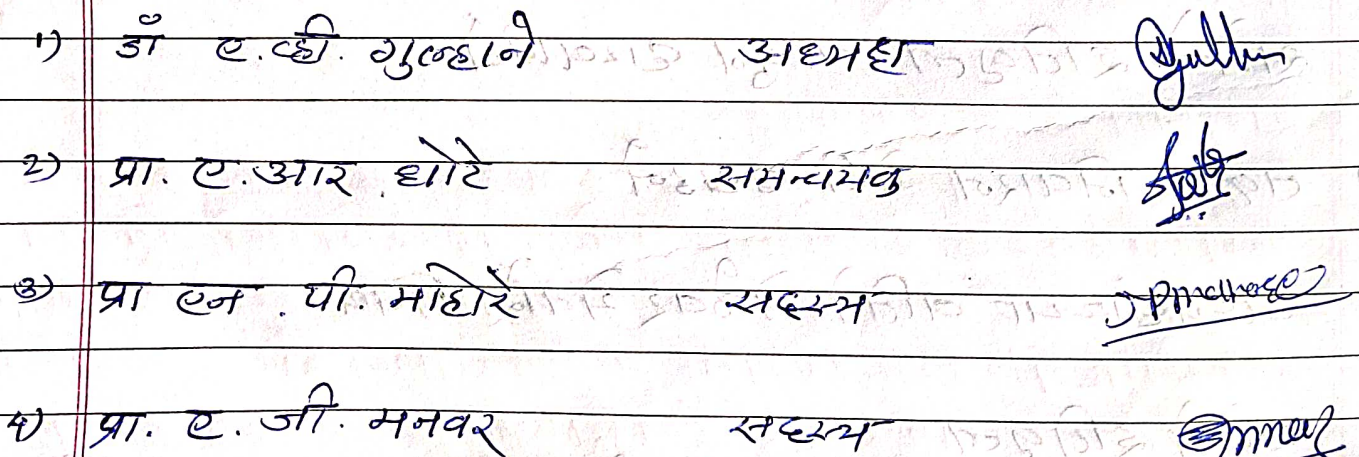 १) डॉ ए.व्ही. गुल्हाने अध्यक्ष
२) प्रा. ए.आर. धोटे समन्वयक
३) प्रा एन. पी. माहोरे सदस्य
४) प्रा. ए. जी. मनवर सदस्य